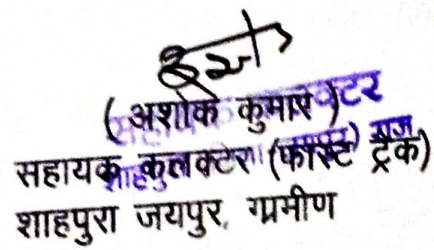 ( अशोक कुमार )
सहायक कलक्टर (फास्ट ट्रैक)
शाहपुरा जयपुर, ग्रमीण